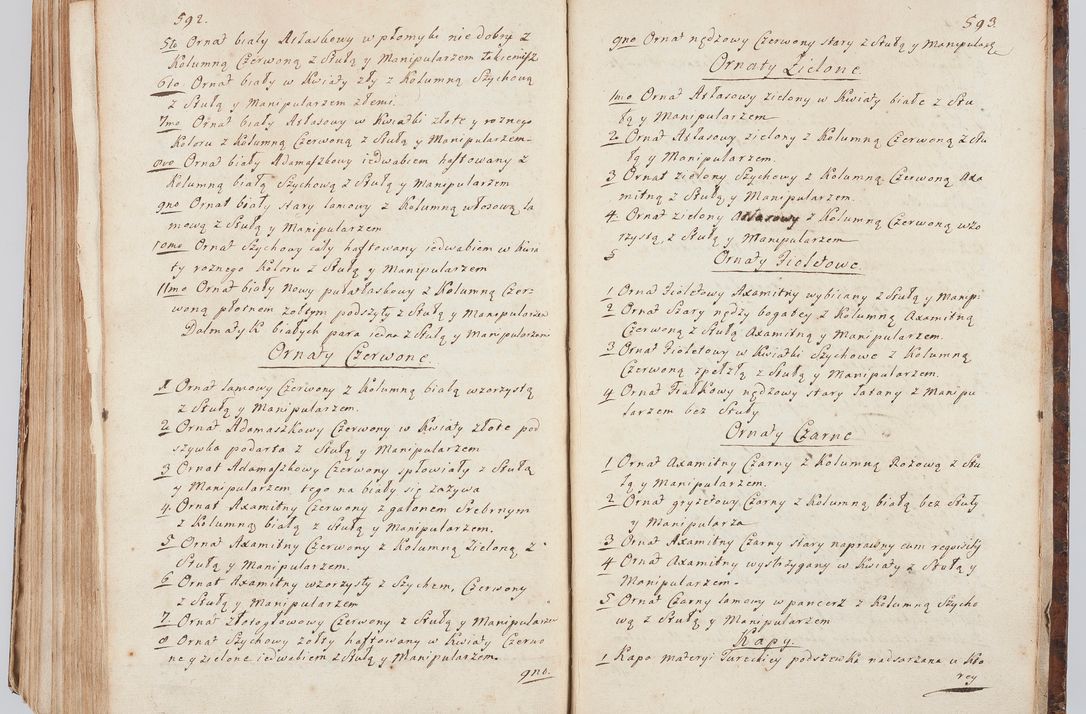 592.
5to Ornat biały Atłaskowy w płomyki nie dobry z
Kolumną Czerwoną z Stułą y Manipularzem takiemisz
6to. Ornat biały w Kwiaty zły z Kolumną Szychową
z Stułą y Manipularzem złemi.
7mo Ornat biały Atłasowy w Kwiatki złote y roznego
Koloru z Kolumną Czerwoną z Stułą y Manipularzem
8vo Ornat biały Adamaszkowy iedwabiem haftowany z
Kolumną białą Szychową z Stułą y Manipularzem
9no Ornat biały stary lamowy z Kolumną włosową la
mową z Stułą y Manipularzem
10mo Ornat Szychowy cały haftowany iedwabiem w Kwia
ty roznego Koloru z Stułą y Manipularzem
11mo Ornat biały Nowy pułatłaskowy z Kolumną Czer-
woną płotnem żołtym podszyty z Stułą y Manipularzem
Dalmatyk białych para iedna z Stułą y Manipularzem
Ornaty Czerwone.
1 Ornat lamowy Czerwony z Kolumną białą wzorzystą
z Stułą y Manipularzem.
2 Ornat Adamaszkowy Czerwony w Kwiaty złote pod
szywka podarta z Stułą y Manipularzem
3 Ornat Adamaszkowy Czerwony spłowiały z Stułą
y Manipularzem tego na biały się zażywa
4. Ornat Axamitny Czerwony z galonem Srebrnym
z Kolumną białą z Stułą y Manipularzem.
5 Ornat Axamitny Czerwony z Kolumną Zieloną z
Stułą y Manipularzem.
6 Ornat Axamitny wzorzysty z Szychem, Czerwony
z Stułą y Manipularzem
7. Ornat złotogłowowy Czerwony z Stułą y Manipularzem
8 Ornat Szychowy żołty haftowany w Kwiaty Czerwo
ne y zielone iedwabiem z Stułą y Manipularzem.
9no.
593
9no Ornat nędzowy Czerwony stary z Stułą y Manipularzem
Ornaty Zielone.
1mo Ornat Atłasowy zielony w Kwiaty białe z Stu
łą y Manipularzem
2 Ornat Atłasowy zielony z Kolumną Czerwoną z Stu
łą y Manipularzem.
3 Ornat zielony Szychowy z Kolumną Czerwoną Axa
mitną z Stułą y Manipularzem.
4 Ornat zielony Atłasowy z Kolumną Czerwoną wzo
rzystą, z Stułą y Manipularzem
5
Ornaty Fioletowe
1 Ornat Fioletowy Axamitny wybiiany z Stułą y Manip:
2 Ornat Szary nędzy bogatey z Kolumną Axamitną
Czerwoną z Stułą Axamitną y Manipularzem.
3 Ornat Fioletowy w Kwiatki Szychowe z Kolumną
Czerwoną zpełzłą z Stułą y Manipularzem.
4 Ornat Fiałkowy nędzowy stary łatany z Manipu
larzem bez Stuły
Ornaty Czarne
1 Ornat Axamitny Czarny z Kolumną Rożową z Stu
łą y Manipularzem.
2 Ornat gryzetowy Czarny z Kolumną białą bez Stuły
y Manipularza
3 Ornat Axamitny Czarny stary naprawny cum requisitis
4 Ornat Axamitny wystrzygany w Kwiaty z Stułą y
Manipularzem.
5 Ornat Czarny lamowy w pancerz z Kolumną Szycho
wą z Stułą y Manipularzem
Kapy.
1 Kapa materyi Tureckiey podszewka nadszarzana u Kto
rey